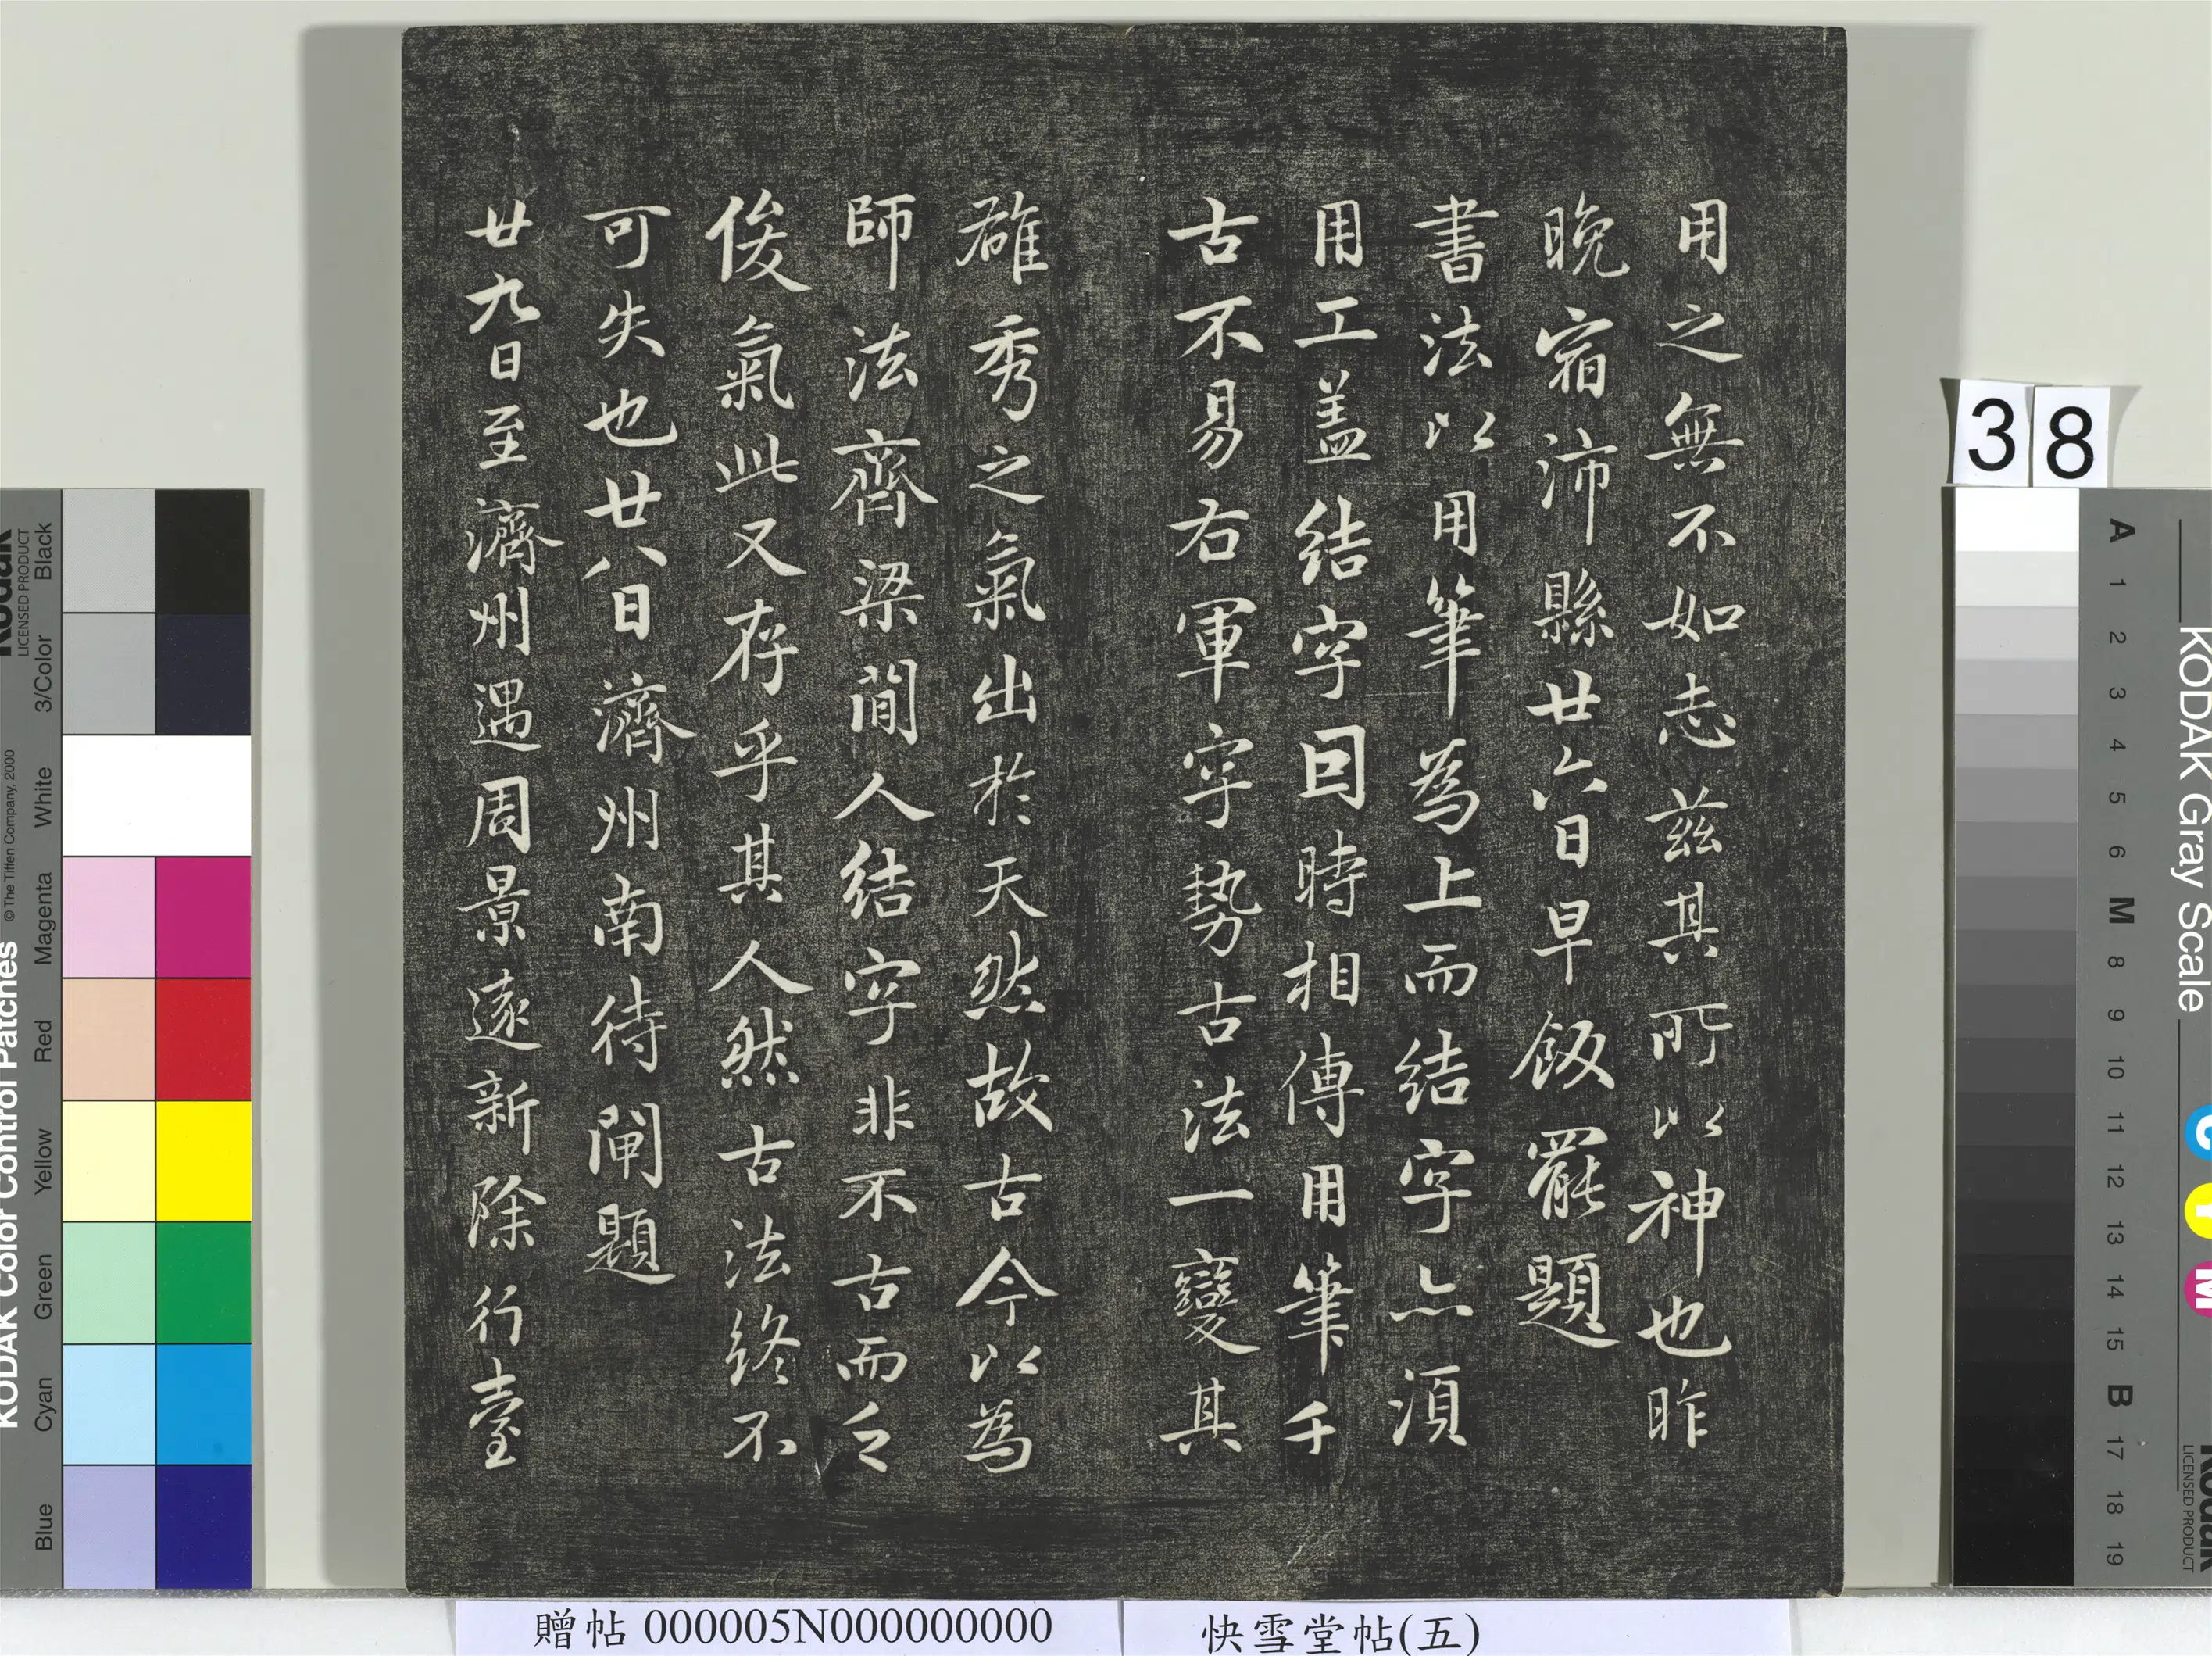 用之無不如志茲其所以神也昨
晚宿沛縣廿六日早飯罷題
書法以用筆為上而結字亦須
用工盖結字因時相傳用筆千
古不易右軍字勢古法一變其
雄秀之氣出於天然故古今以為
師法齊梁間人結字非不古而乏
俊氣此又存乎其人然古法終不
可失也廿八日濟州南待閘題
廿九日至濟州遇周景遠新除行臺
38
贈帖 000005N000000000
快雪堂帖(五)
KODAK Color Control Patches
© The Tiffen Company, 2000
Kodak
LICENSED PRODUCT
Blue Cyan Green Yellow Red Magenta White 3/Color Black
KODAK Gray Scale
C Y M
Kodak
LICENSED PRODUCT
A 1 2 3 4 5 6 M 8 9 10 11 12 13 14 15 B 17 18 19